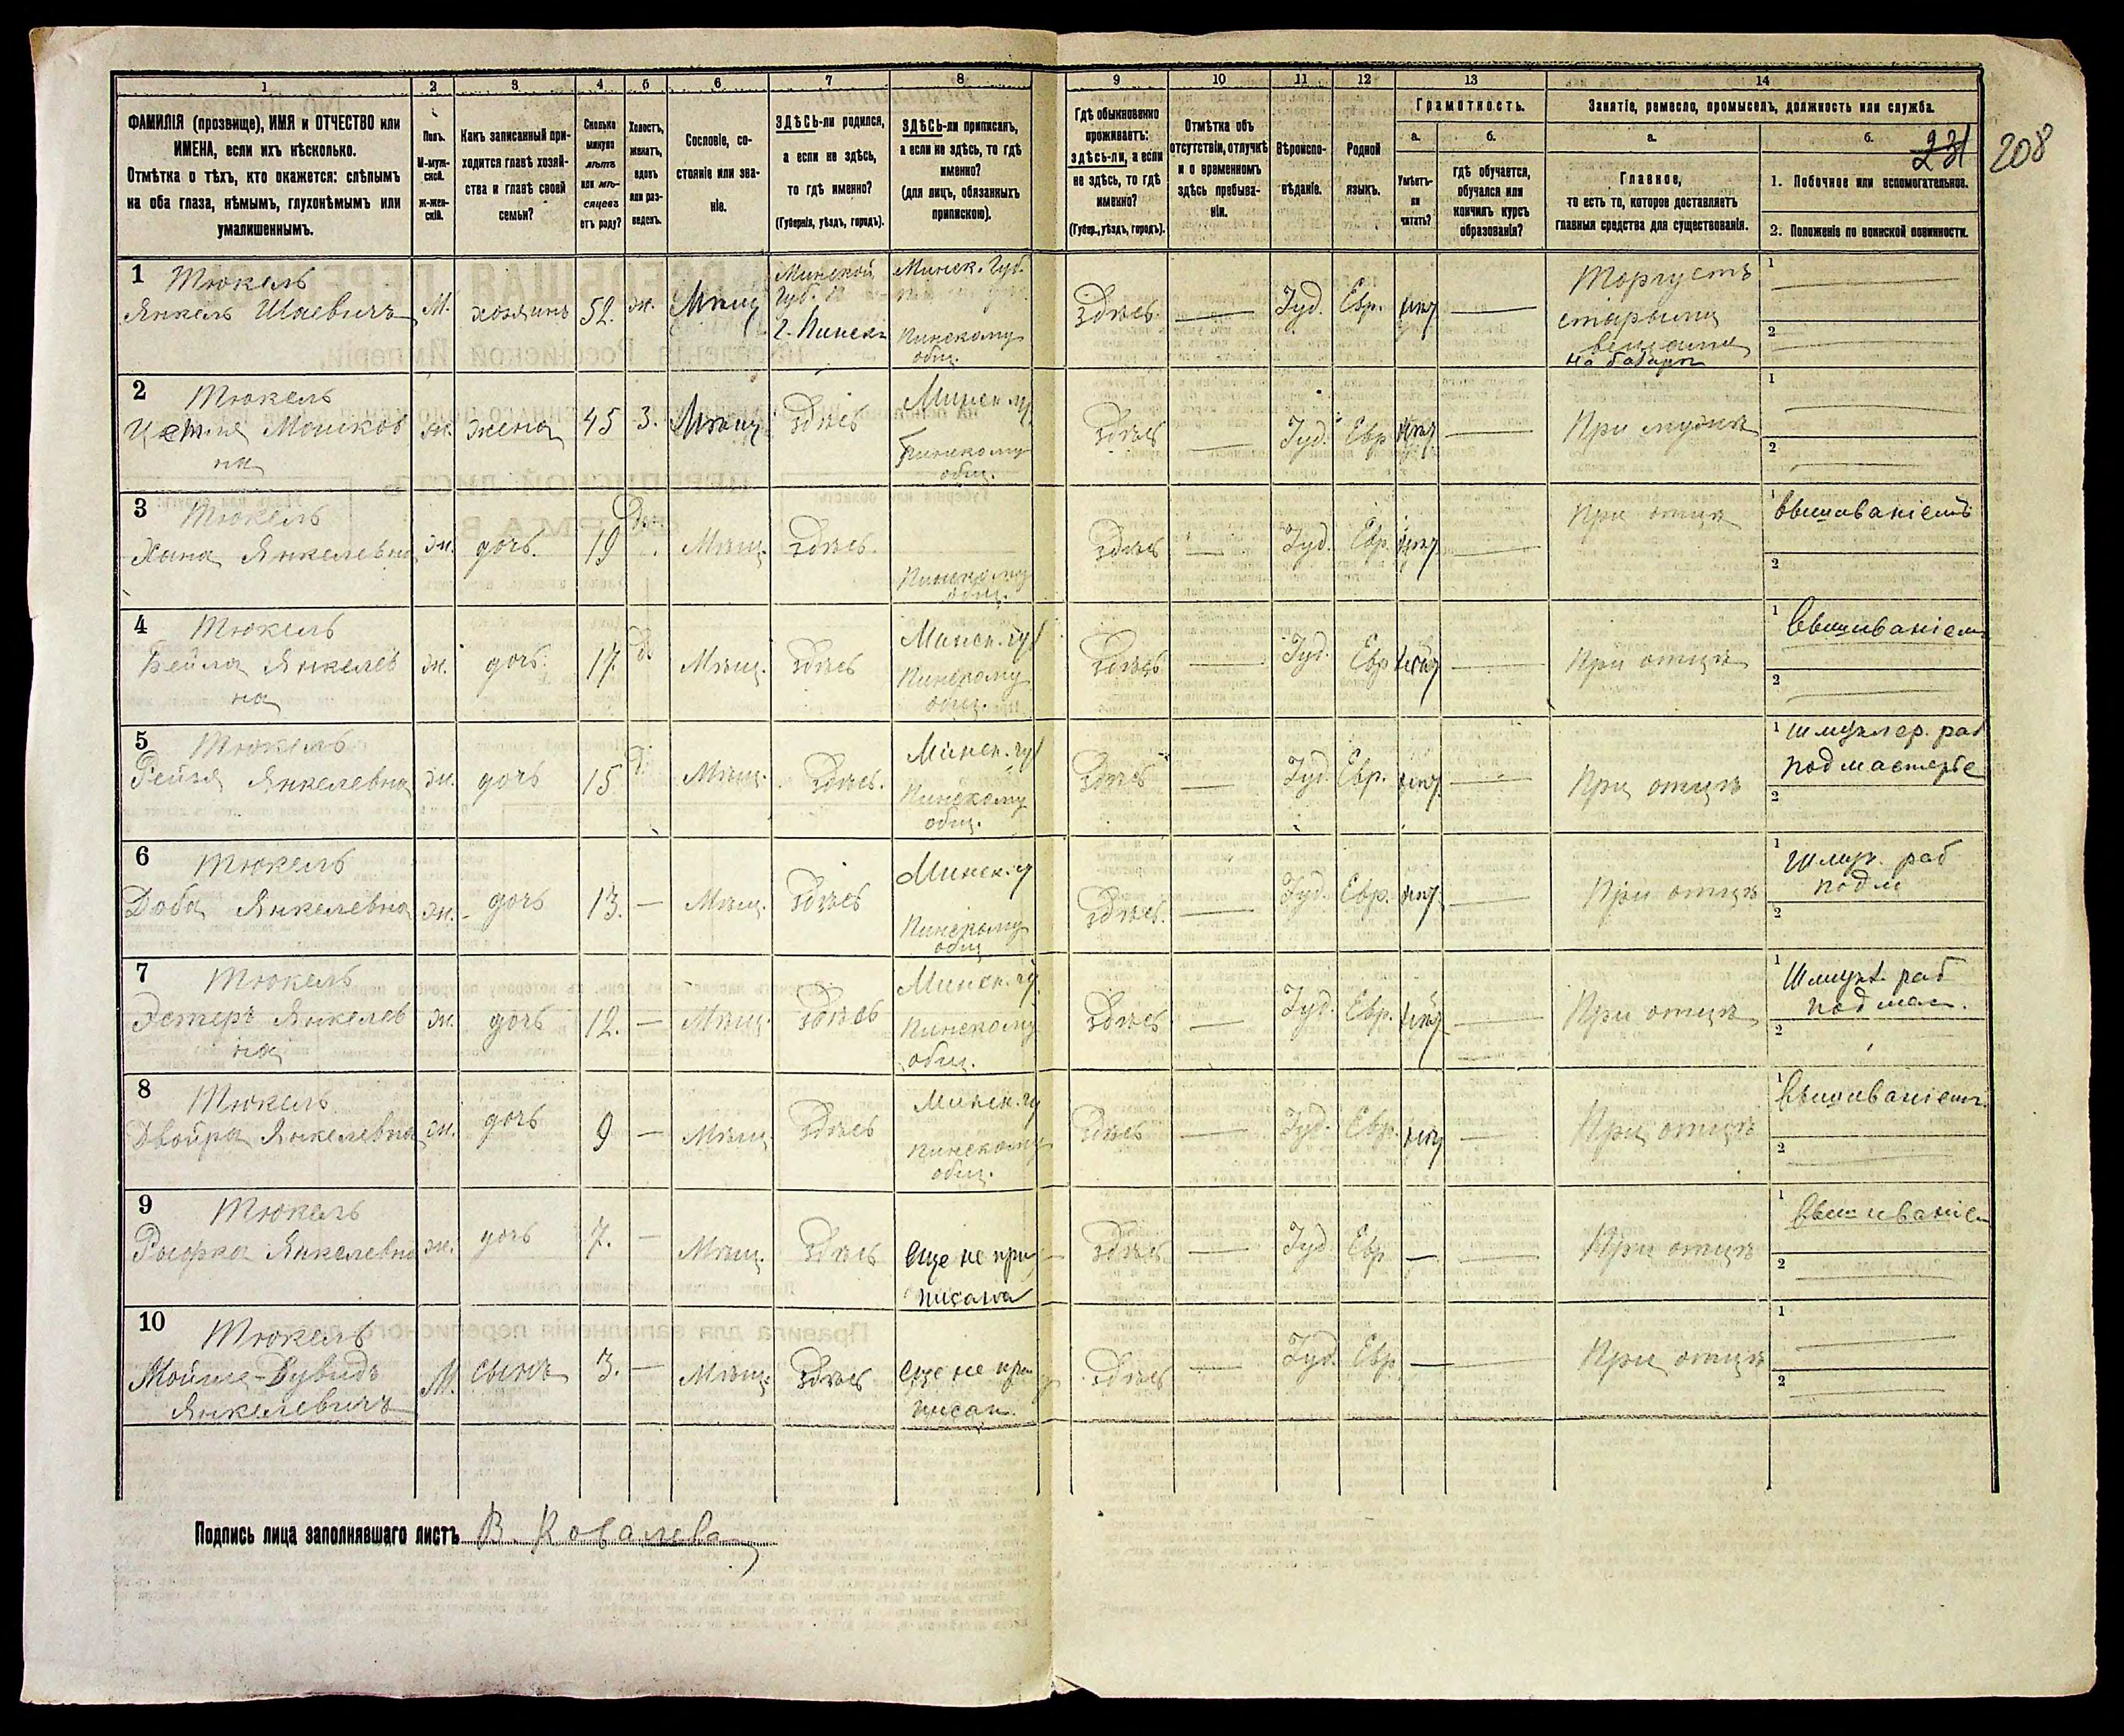 1 2 3 4 5 6 7 8 9 10 11 12 13 14
ФАМИЛІЯ (прозвище), ИМЯ и ОТЧЕСТВО или
ИМЕНА, если ихъ нѣсколько.
Отмѣтка о тѣхъ, кто окажется: слѣпымъ
на оба глаза, нѣмымъ, глухонѣмымъ или
умалишеннымъ.
Полъ.
М-муж-
ской.
Ж-жен-
скій.
Какъ записанный при-
ходится главѣ хозяй-
ства и главѣ своей
семьи?
Сколько
минуло
лѣтъ
или мѣ-
сяцевъ
отъ роду?
Холостъ,
женатъ,
вдовъ
или раз-
веденъ.
Сословіе, со-
стояніе или зва-
ніе.
ЗДѢСЬ-ли родился,
а если не здѣсь,
то гдѣ именно?
(Губернія, уѣздъ, городъ).
ЗДѢСЬ-ли приписанъ,
а если не здѣсь, то гдѣ
именно?
(для лицъ, обязанныхъ
припискою).
Гдѣ обыкновенно
проживаетъ:
здѣсь-ли, а если
не здѣсь, то гдѣ
именно?
(Губер., уѣздъ, городъ).
Отмѣтка объ
отсутствіи, отлучкѣ
и о временномъ
здѣсь пребыва-
ніи.
Вѣроиспо-
вѣданіе.
Родной
языкъ.
Грамотность.
а.
Умѣетъ-
ли
читать?
б.
гдѣ обучается,
обучался или
кончилъ курсъ
образованія?
Занятіе, ремесло, промыселъ, должность или служба.
а.
Главное,
то есть то, которое доставляетъ
главныя средства для существованія.
б.
231 208
1. Побочное или вспомогательное.
2. Положеніе по воинской повинности.
1 Тюкель
Янкель Шаевичъ М. хозяинъ 52. ж. Мѣщ
Минской
губ.
г. Пинскъ
Минск. Губ.
Пинскому
общ.
Здѣсь. Іуд. Евр.
Торгуетъ
старыми
вещами
на базарѣ
1
2
2 Тюкель
Мошков
на
ж. жена 45 З. Мѣщ Здѣсь
Минск. гу
Пинскому
общ.
Здѣсь Іуд. Евр При мужѣ
1
2
3 Тюкель
Хана Янкелевна ж. дочь. 19 Мѣщ. Здѣсь.
Пинскому
общ.
Здѣсь Іуд. Евр. При отцѣ
1 Вышиваніемъ
2
4 Тюкель
Бейла Янкелев
на
ж. дочь. 17. Мѣщ. Здѣсь
Минск. гу
Пинскому
общ.
Здѣсь Іуд. Евр При отцѣ
1 Вышиваніем
2
5 Тюкель
Рейзя Янкелевна ж. дочь 15 Мѣщ. Здѣсь.
Минск. гу
Пинскому
общ.
Здѣсь Іуд. Евр. При отцѣ
1 Шмуклер. раб
подмастерье
2
6 Тюкель
Доба Янкелевна ж. дочь 13. — Мѣщ. Здѣсь
Минск. г
Пинскому
общ
Здѣсь. Іуд. Евр. При отцѣ
1 Шмук. раб
подм
2
7 Тюкель
Эстеръ Янкелев
на
ж. дочь 12. — Мѣщ. Здѣсь
Минск. гу.
Пинскому
общ.
Здѣсь Іуд. Евр. При отцѣ
1 Шмукл. раб
подмас.
2
8 Тюкель
Двойра Янкелевна ж. дочь 9 — Мѣщ. Здѣсь
Минск. гу
Пинскому
общ.
Здѣсь Іуд. Евр. При отцѣ
1 Вышиваніем.
2
9 Тюкель
Рыфка Янкелевна ж. дочь 7. — Мѣщ. Здѣсь
Еще не при
писана
Здѣсь Іуд Евр — При отцѣ
1 Вышиваніем
2
10 Тюкель
Мойше-Дувидъ
Янкелевичъ
М. сынъ 3. — Мѣщ. Здѣсь
Еще не при
писан.
Здѣсь Іуд. Евр — При отцѣ
1
2
Подпись лица заполнявшаго листъ В. Ковалева